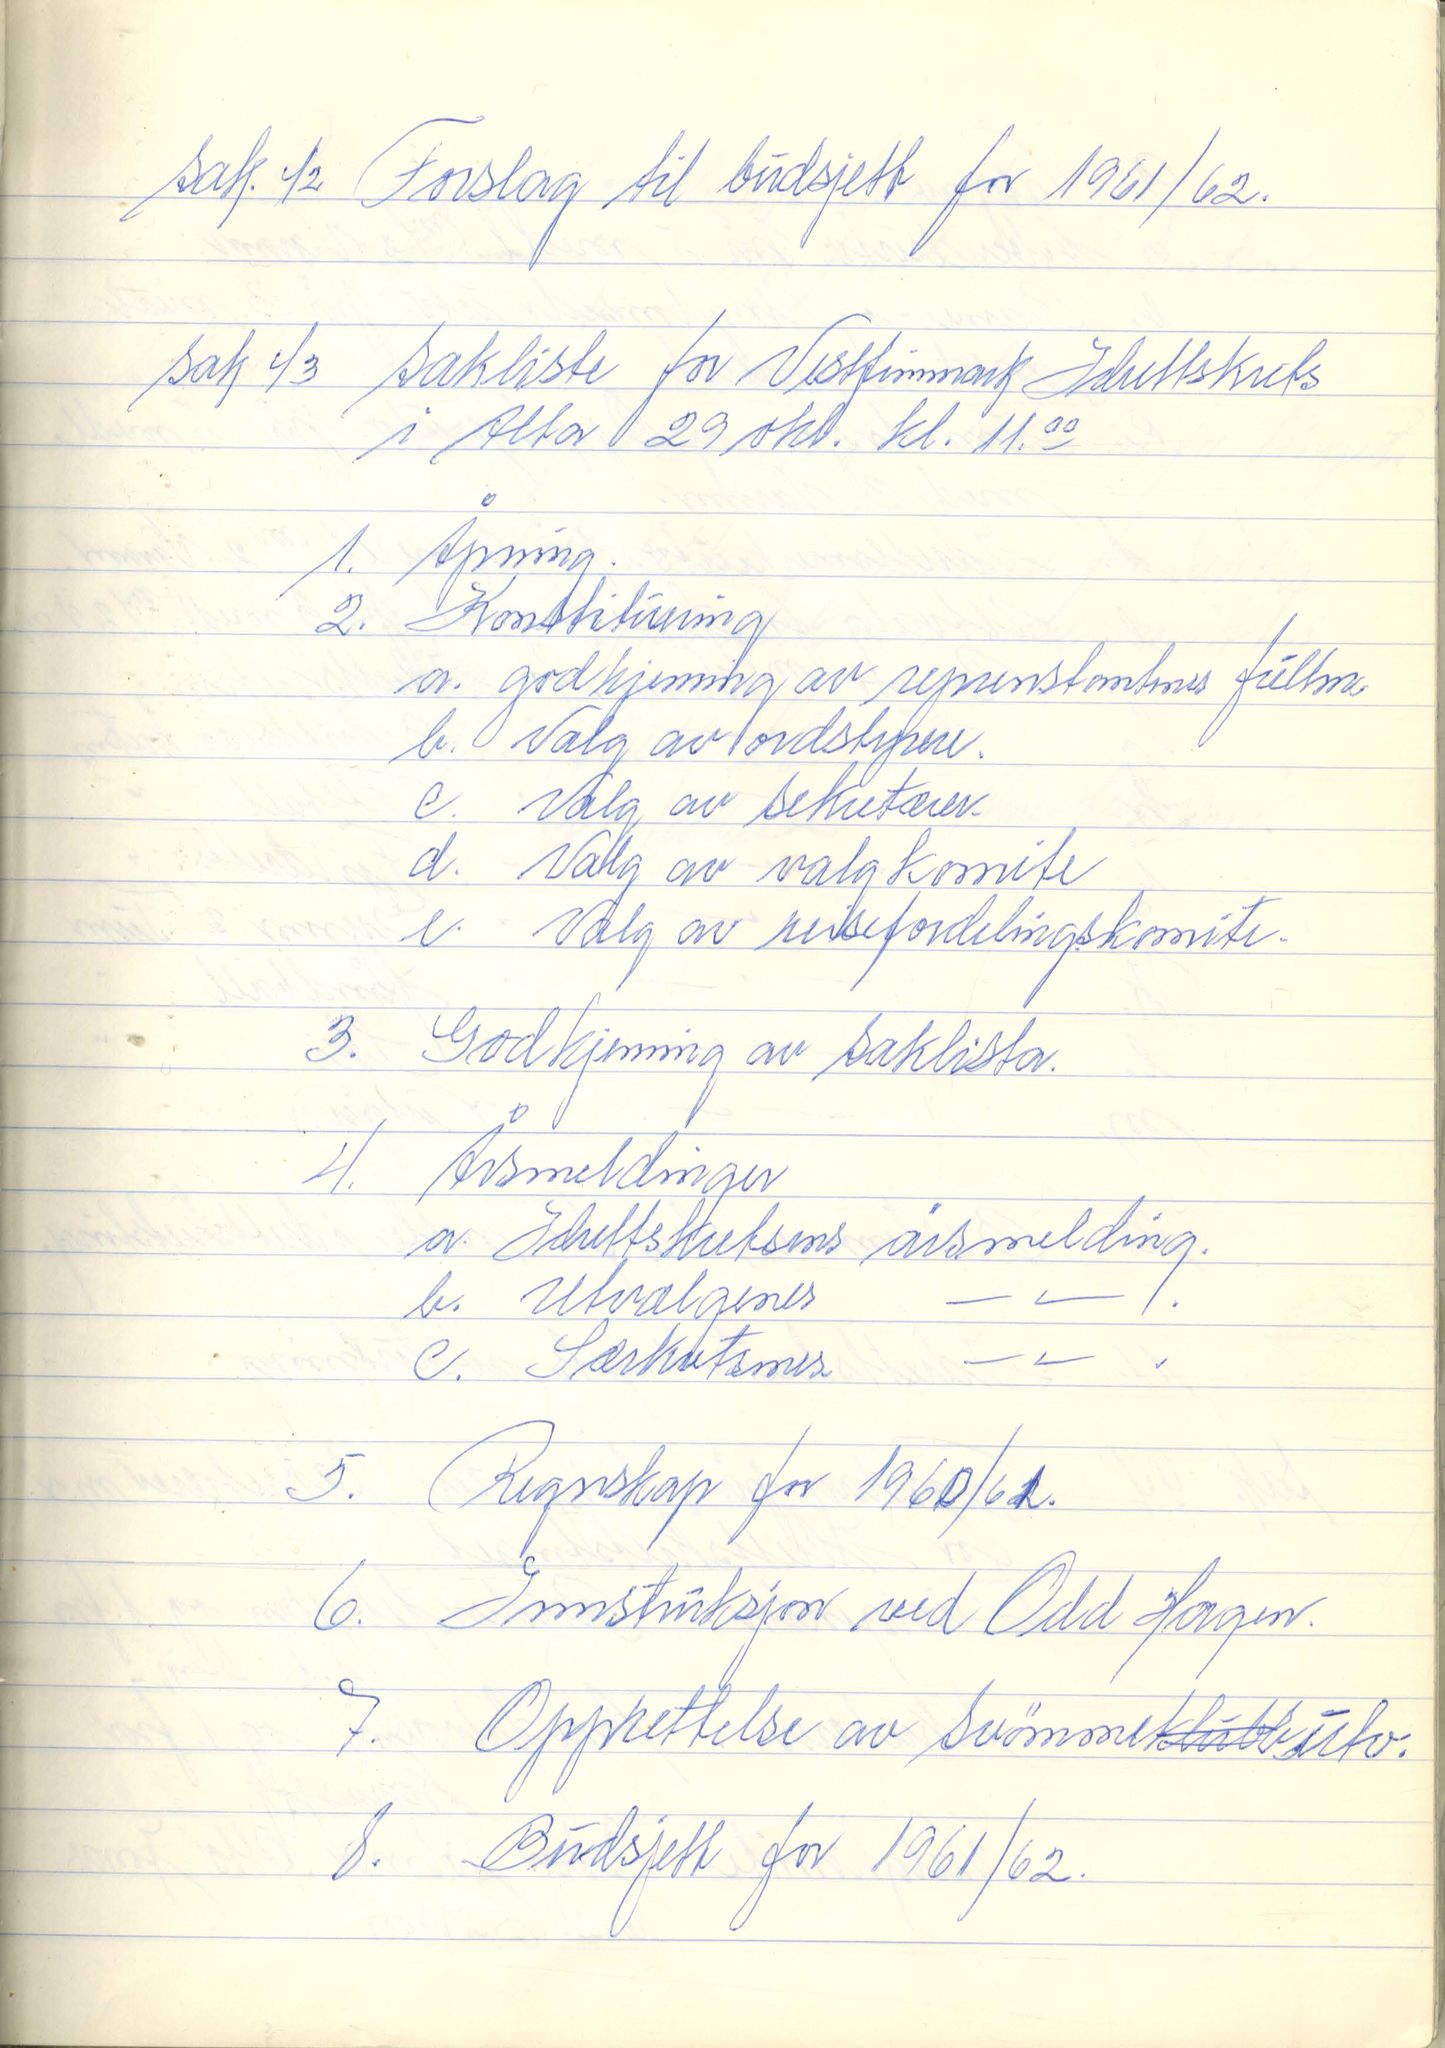 Sak. 42 Forslag til budsjett for 1961/62.
Sak 43 Sakliste for Vestfinnmark Idrettskrets
i Alta 29 okt. kl. 11.00
1. Åpning.
2. Konstituering
a. godkjenning av represtantenes fullm.
b. Valg av ordstyrere.
c. Valg av sekretærer
d. Valg av valgkomite
e. Valg av reisefordelingskomite.
3. Godkjenning av saklista.
4. Årsmeldinger
a. Idrettskretsens årsmelding.
b. Utvalgenes — " — .
c. Særkretsenes — " — .
5. Regnskap for 1960/61.
6. Innstruksjon ved Odd Hagen.
7. Opprettelse av svömmeklubbsutv.
8. Budsjett for 1961/62.